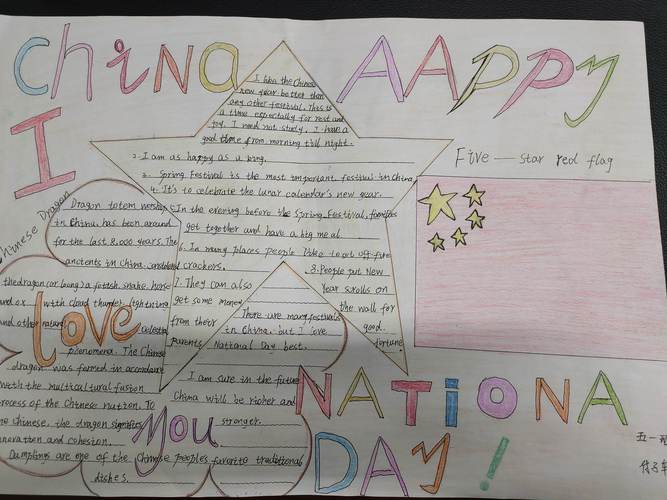 China AAPPY
I Love you
NATIONA
DAY!
Five — star red flag
I like the Chinese
new year better than
any other festival. This is
a time especially for rest and
joy. I need not study. I have a
good time from morning till night.
2. I am as happy as a king.
3. Spring Festival is the most important festival in China.
4. It's to celebrate the lunar calendar's new year.
In the evening before the Spring Festival, families
get together and have a big meal
6. In many places people like to set off fire
crackers.
7. They can also
get some money
from their
parents
8. People put New
Year scrolls on
the wall for
good
fortune.
There are many festivals
in China. but I love
National Day best.
I am sure in the future
China will be richer and
stronger.
Chinese Dragon
Dragon totem worship
in China has been around
for the last 8,000 years. The
ancients in China considered
the dragon (or loong) a fetish. snake. horse
and ox with cloud thunder, lightning
and other natural celestial
phenomena. The Chinese
dragon was formed in accordance
with the multicultural fusion
process of the Chinese nation. To
the Chinese, the dragon signifies
and cohesion.
Dumplings are one of the Chinese people's favorite traditional
dishes.
五一班